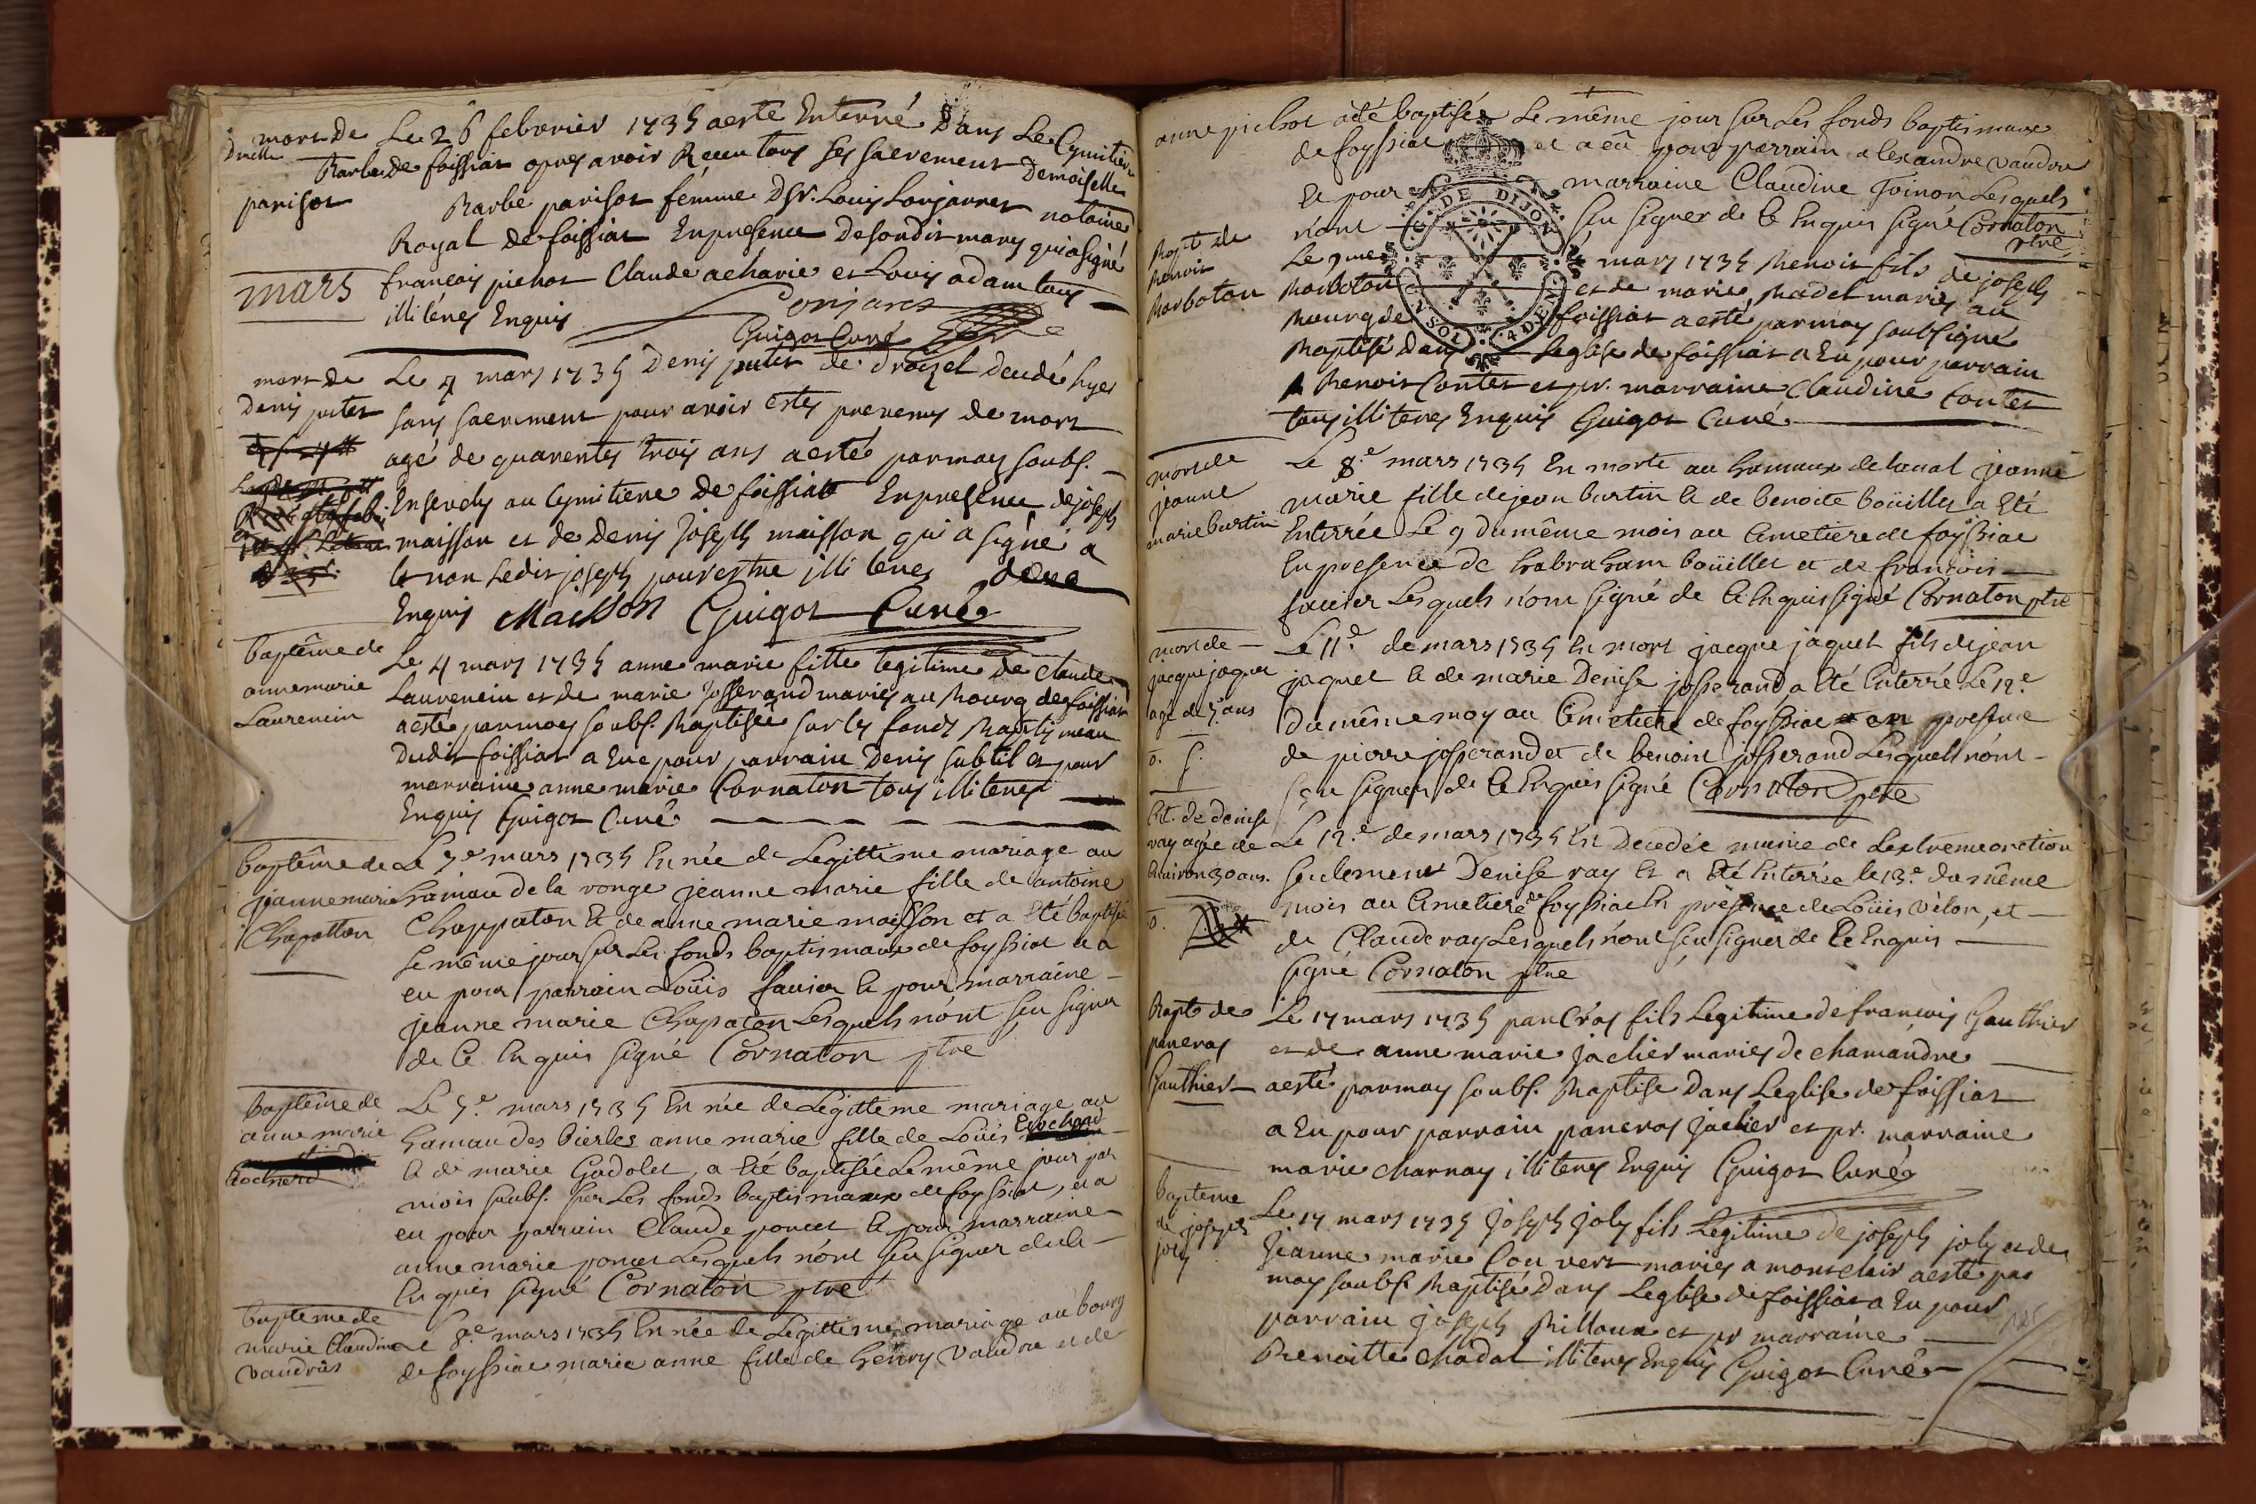 mort de
Dmlle
Barbe
parisot
Le 26 febvrier 1735 a esté Enterré Dans Le Cymitiere
de foissiat apres avoir Receu tous ses sacrement Demoiselle
Barbe parisot femme D Sr. Louis Lonjarret notaire
Royal de foissiat En presence de sondit mary qui a signé
françois pichot Claude acharie et Louis adam tous
illiterés Enquis
Lonjaret
Guigot Curé
mars
mort de
Denis putet
Le 4 mars 1735 Denis putet de droizel decedé hyer
sans sacrement pour avoir estez prevenus de mort
agé de quarentes trois ans a esté par moy soubs.
Ensevely au Cymitiere de foissiat En presence de joseph
maisson et de Denis Joseph maisson qui a signé a
et non Ledit joseph pour estre illiteres de ce
Enquis Maisson Guigot Curé
baptême de
anne marie
Laurencin
Le 4 mars 1735 anne marie fille legitime de Claude
Laurencin et de marie Josserand mariés au Bourg de foissiat
a esté par moy soubs. Baptisée sur les fonds Baptismeau
dudit foissiat a Eue pour parrain Denis subtil et pour
marraine anne marie Cornaton tous illiteres
Enquis Guigot Curé
baptême de
jeanne marie
Chapatton
Le 5e mars 1735 En née de Legittime mariage au
hamau de la ronge jeanne marie fille de antoine
Chappaton et de anne marie maisson et a été baptisé
le même jour sur Les fonds baptismaux de foyssiat et a
eu pour parrain Loüis favier et pour marraine
jeanne marie Chapaton Lesquels n'ont sçu signer
de ce Enquis signé Cornaton ptre
baptême de
anne marie
Cochard
Le 5e mars 1735 En née de Légitteme mariage au
hamau des bierles anne marie fille de Loüis Cochard
et de marie Gadolet, a été baptisée Le même jour par
mois soubs. sur Les fonds baptismaux de foyssiat, et a
eu pour parrain Claude poncet et pour marraine
anne marie poncet Lesquels n'ont sçu signer de ce
Enquis signé Cornaton ptre
baptême de
marie Claudine
vaudras
Le 8e mars 1735 En née de Legitteme mariage au bourg
de foyssiat marie anne fille de henry vaudra et de
anne pichot a été baptisée Le même jour sur Les fonds baptismaux
de foyssiat et a eû pour parrain alexandre vaudra
et pour marraine Claudine Joinon Lesquels
n'ont sçu signer de ce Enquis signé Cornaton
ptre
G. DE DIJON
Bapt. de
Benoit
Marboton
Le 9me mars 1735 Benoit fils de joseph
Marboton et de marie Badel mariés au
Bourg de foissiat a esté par moy soubsigné
Baptisé Dans Leglise de foissiat a Eu pour parrain
Benoit Contet et pr. marraine Claudine Contet
tous illiteres Enquis Guigot Curé
mort de
jeanne
marie burtin
Le 8e mars 1735 En morte au hamaux de Laval jeanne
marie fille de jean burtin et de benoite boüillet a Eté
Enterrée Le 9 du même mois au Cimetiere de foyssiat
En presence de habraham boüillet et de francois
favier Lesquels n'ont signé de ce Enquis signé Cornaton ptre
mort de
jacque jaquet
agé de 5 ans
Le 11e de mars 1735 En mort jacque jaquet fils de jean
jaquet et de marie Denise josserand a Eté Enterré Le 12e
du même moy au Cimetiere de foyssiat en presence
de pierre josserand et de benoint josserand Lesquels n'ont
sçu signer de ce Enquis signé Cornaton ptre
Et. de denise
ray agée de
Environ 30 ans.
Le 12e de mars 1735 Est Decedée munie de Lextreme onction
seulement Denise ray Et a Eté Enterrée le 13e du même
mois au Cimetiere de foyssiat En présence de Loüis velon, et
de Claude ray Lesquels n'ont sçu signer de ce Enquis
signé Cornaton ptre
Bapt. de
pancras
Gauthier
Le 17 mars 1735 pancras fils Legitime de francois Gauthier
et de anne marie Jaclier mariés de chamandre
a esté par moy soubs. Baptise Dans Leglise de foissiat
a Eu pour parrain pancras Jaclier et pr. marraine
marie charnay illiteres Enquis Guigot Curé
bapteme
de joseph
joly
Le 17 mars 1735 Joseph Joly fils Legitime de joseph joly et de
Jeanne marie Couvert mariés a montclair a esté par
moy soubs. Baptisé Dans Leglise de foissiat a Eu pour
parrain joseph Billoux et pr marraine
Benoitte Badal illiteres Enquis Guigot Curé